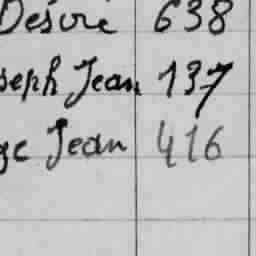 Désiré 638
seph Jean 137
ge Jean 416